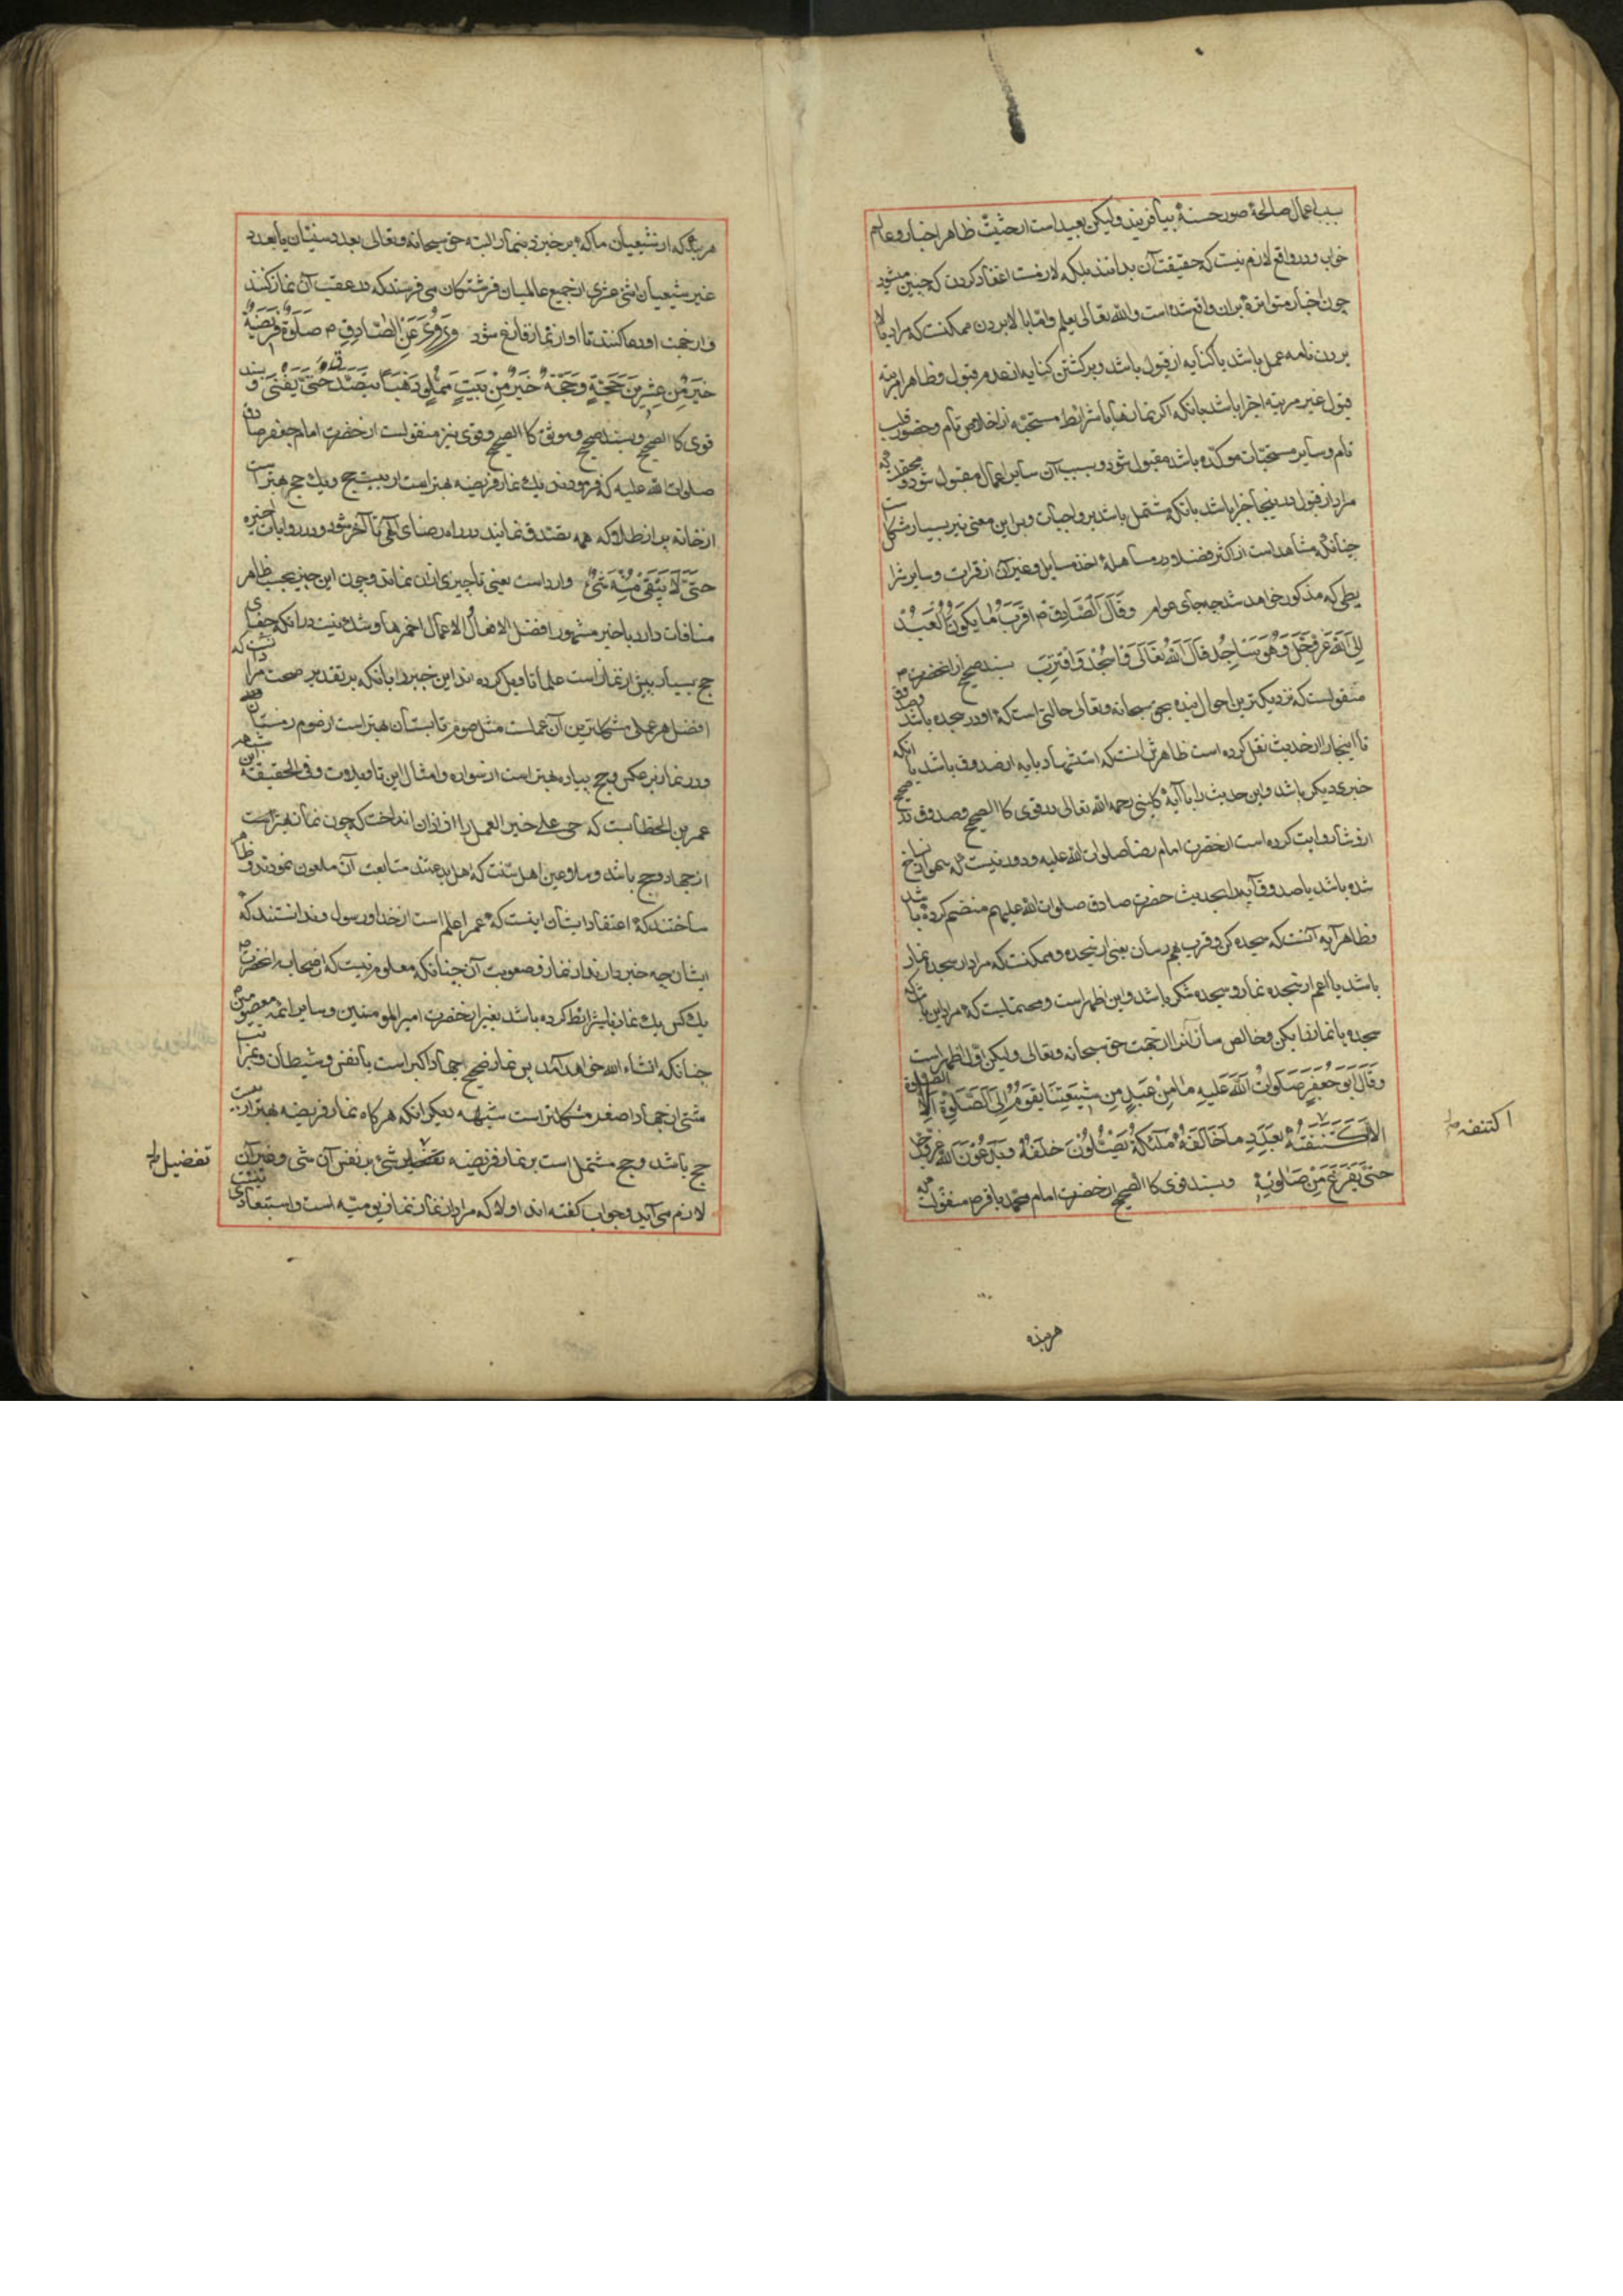 بسبب اعمال صالحهٔ صور حسنهٔ بیافریند ولیکن بعید است از حیثیت ظاهر اخبار و عالم
خواب و در واقع لازم نیست که حقیقت آن بدانند بلکه لازمست اعتقاد کردن که چنین میشود
چون اخبار متواتره بران واقع شده است والله تعالی یعلم و اما بالا بردن ممکنست که مراد بالا
بردن نامه عمل باشد یا کنایه از قبول باشد و برکشتن کنایه از عدم قبول و ظاهرا مرتبه
قبول غیر مرتبه اجزا باشد بانکه اکر نمازها با شرایط مستحبه از اخلاص تام و حضور قلب
تام و سایر مستحبات موکده باشد مقبول شود و بسبب آن سایر اعمال مقبول شود و
مراد از قبول در اینجا اجزا باشد بانکه مشتمل باشد بر واجبات و برین معنی نیز بسیار مشکل
چنانکه مشاهد است از اکثر فضلا در مساهلهٔ اخذ مسایل و غیر آن از قرائت و سایر شرا
یطی که مذکور خواهد شد چه جای عوام وَقَالَ الصَّادِقُ م اَقْرَبُ مَا یَکُونُ الْعَبْدُ
اِلَی اللهِ عَزَّ وَجَلَّ وَهُوَ سَاجِدٌ قَالَ اللهُ تَعَالَی وَاسْجُدْ وَاقْتَرِبْ بسند صحیح از انحضرت م
منقولست که نزدیکترین احوال بنده بحق سبحانه وتعالی حالتی است که او در سجده باشد
تا اینجا را از حدیث نقل کرده است ظاهرش انست که استشهاد بایه از صدوق باشد یا انکه
خبری دیکر باشد و این حدیث را با آیه کلینی رحمه الله تعالی در قوی کالصحیح و صدوق
از وشا روایت کرده است از حضرت امام رضا صلوات الله علیه و دور نیست که سهو از نساخ
شده باشد یا صدوق آیه را بحدیث حضرت صادق صلوات الله علیهم منضم کرده باشد
و ظاهر آیه آنست که سجده کن و قرب بهم رسان یعنی از سجده و ممکنست که مراد از سجده نماز
باشد یا اعم از سجده نماز و سجده شکر باشد و این اظهر است و محتملست که مراد این باشد که
سجده یا نماز را بکن و خالص ساز آنرا از جهت حق سبحانه وتعالی ولیکن اول اظهر است
وَقَالَ اَبُو جَعْفَرٍ صَلَوَاتُ اللهِ عَلَیْهِ مَا مِنْ عَبْدٍ مِنْ شِیعَتِنَا یَقُومُ اِلَی الصَّلٰوةِ اِلَّا
اکتنفه بِعَدَدِ مَا خَالَفَهُ مَلَائِکَةٌ یُصَلُّونَ خَلْفَهُ وَیَدْعُونَ اللهَ عَزَّ وَجَلَّ
حَتَّی یَفْرُغَ مِنْ صَلٰوتِهِ و بسند قوی کالصحیح از حضرت امام محمد باقر م منقولست که
اکتنفه
هر بنده
هر بنده که از شیعیان ما که برخیزد بنماز البته حق سبحانه وتعالی بعدد سنیان یا بعدد
غیر شیعیان اثنی عشری از جمیع عالمیان فرشتکان می فرستد که در عقب آن نماز کنند
و از جهت او دعا کنند تا او از نماز فارغ شود وَرُوِیَ عَنِ الصَّادِقِ م صَلٰوةٌ فَرِیضَةٌ
خَیْرٌ مِنْ عِشْرِینَ حَجَّةً وَحَجَّةٌ خَیْرٌ مِنْ بَیْتٍ مَمْلُوٍّ ذَهَبًا یُتَصَدَّقُ حَتَّی یَفْنَی و بسند
قوی کالصحیح و بسند صحیح و موثق کالصحیح و قوی نیز منقولست از حضرت امام جعفر صادق
صلوات الله علیه که فرمودند یک نماز فریضه بهتر است از بیست حج و یک حج بهتر است
از خانه پر از طلا که همه تصدق نمایند در راه رضای الهی تا آخر شود و در روایات اخیره
حَتَّی لَا یَبْقَی مِنْهُ شَیْءٌ وارد است یعنی تا چیزی ازان نماند و چون این خبر بحسب ظاهر
منافات دارد با خبر مشهور افضل الاعمال احمزها و شک نیست در انکه جفای
حج بسیار بیش از نماز است علما تاویل کرده اند این خبر را بانکه بر تقدیر صحت مراد آنست که
افضل هر عملی مشکلترین آن عملست مثل صوم تابستان بهتر است از صوم زمستان
و در نماز برعکس و حج پیاده بهتر است از سواره و امثال این تاویلات و فی الحقیقة
عمر بن الخطابست که حی علی خیر العمل را از اذان انداخت که چون نماز بهتر است
از جهاد و حج باشد و ملاعین اهل سنت که اهل بدعتند متابعت آن ملعون نمودند و
ساختند که اعتقاد ایشان اینست که عمر اعلم است از خدا و رسول و ندانستند که
ایشان چه خبر دارند از نماز و صعوبت آن چنانکه معلوم نیست که از اصحاب انحضرت
یک کس یک نماز با شرایط کرده باشد بغیر از حضرت امیرالمومنین و سایر ائمه معصومین
چنانکه انشاء الله خواهد آمد پس نماز صحیح جهاد اکبر است با نفس و شیطان و بمراتب
شتی از جهاد اصغر مشکلتر است شبهه دیکر انکه هرکاه نماز فریضه بهتر از بیست
حج باشد و حج مشتمل است بر نماز فریضه تفضیل شیء بر نفس آن شی و غیر آن
لازم می آید و جواب کفته اند اولا که مراد از نماز نماز یومیه است و استبعادی نیست
تفضیل